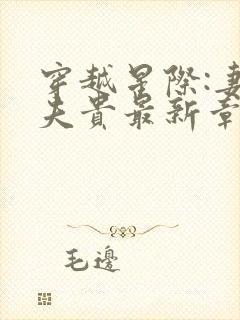 穿越星際:妻
夫貴最新章
毛邊